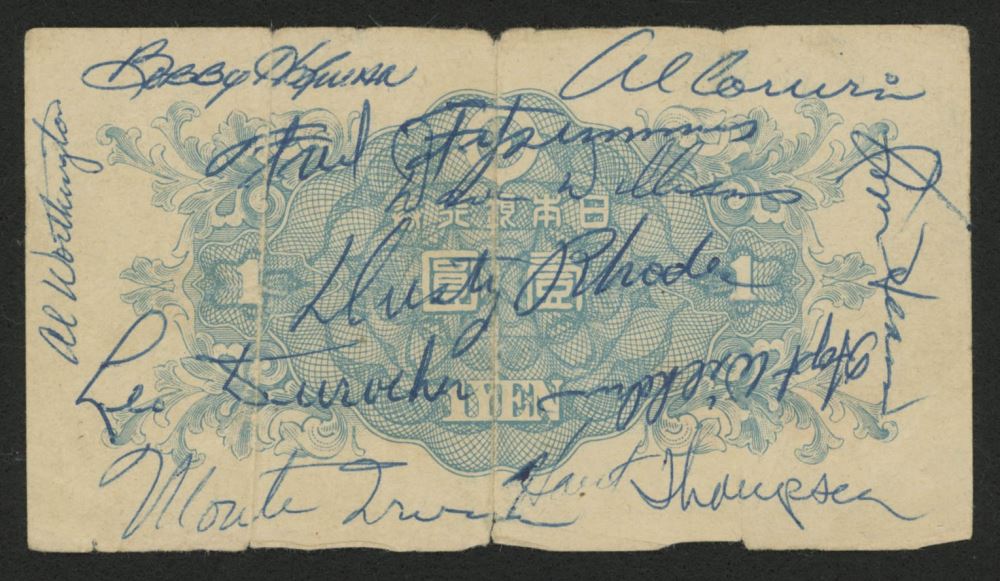 Bobby Hofman
Al Corwin
Al Worthington
Fred Fitzsimmons
Davey Williams
日本銀行券
Dusty Rhodes
1 壹圓 1
Leo Durocher
Hoyt Wilhelm
1 YEN
Monte Irvin
Hank Thompson